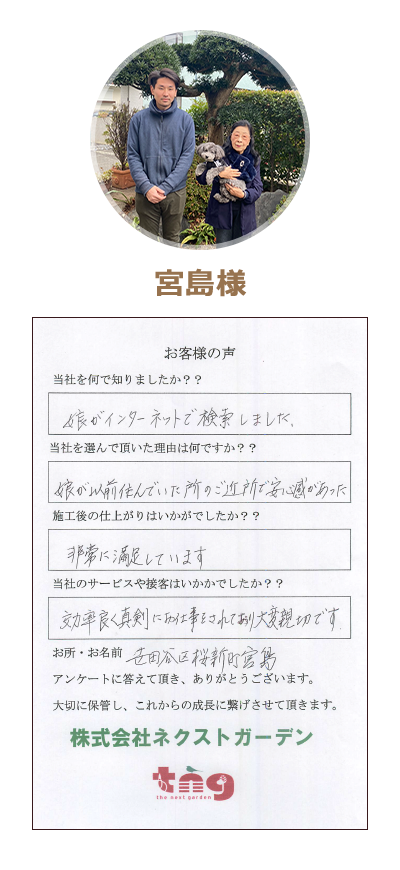 宮島様
お客様の声
当社を何で知りましたか？？
娘がインターネットで検索しました。
当社を選んで頂いた理由は何ですか？？
娘が以前住んでいた所のご近所で安心感があった
施工後の仕上がりはいかがでしたか？？
非常に満足しています
当社のサービスや接客はいかかでしたか？？
効率良く真剣にお仕事をされており大変親切です。
お所・お名前 世田谷区桜新町宮島
アンケートに答えて頂き、ありがとうございます。
大切に保管し、これからの成長に繋げさせて頂きます。
株式会社ネクストガーデン
tng
the next garden